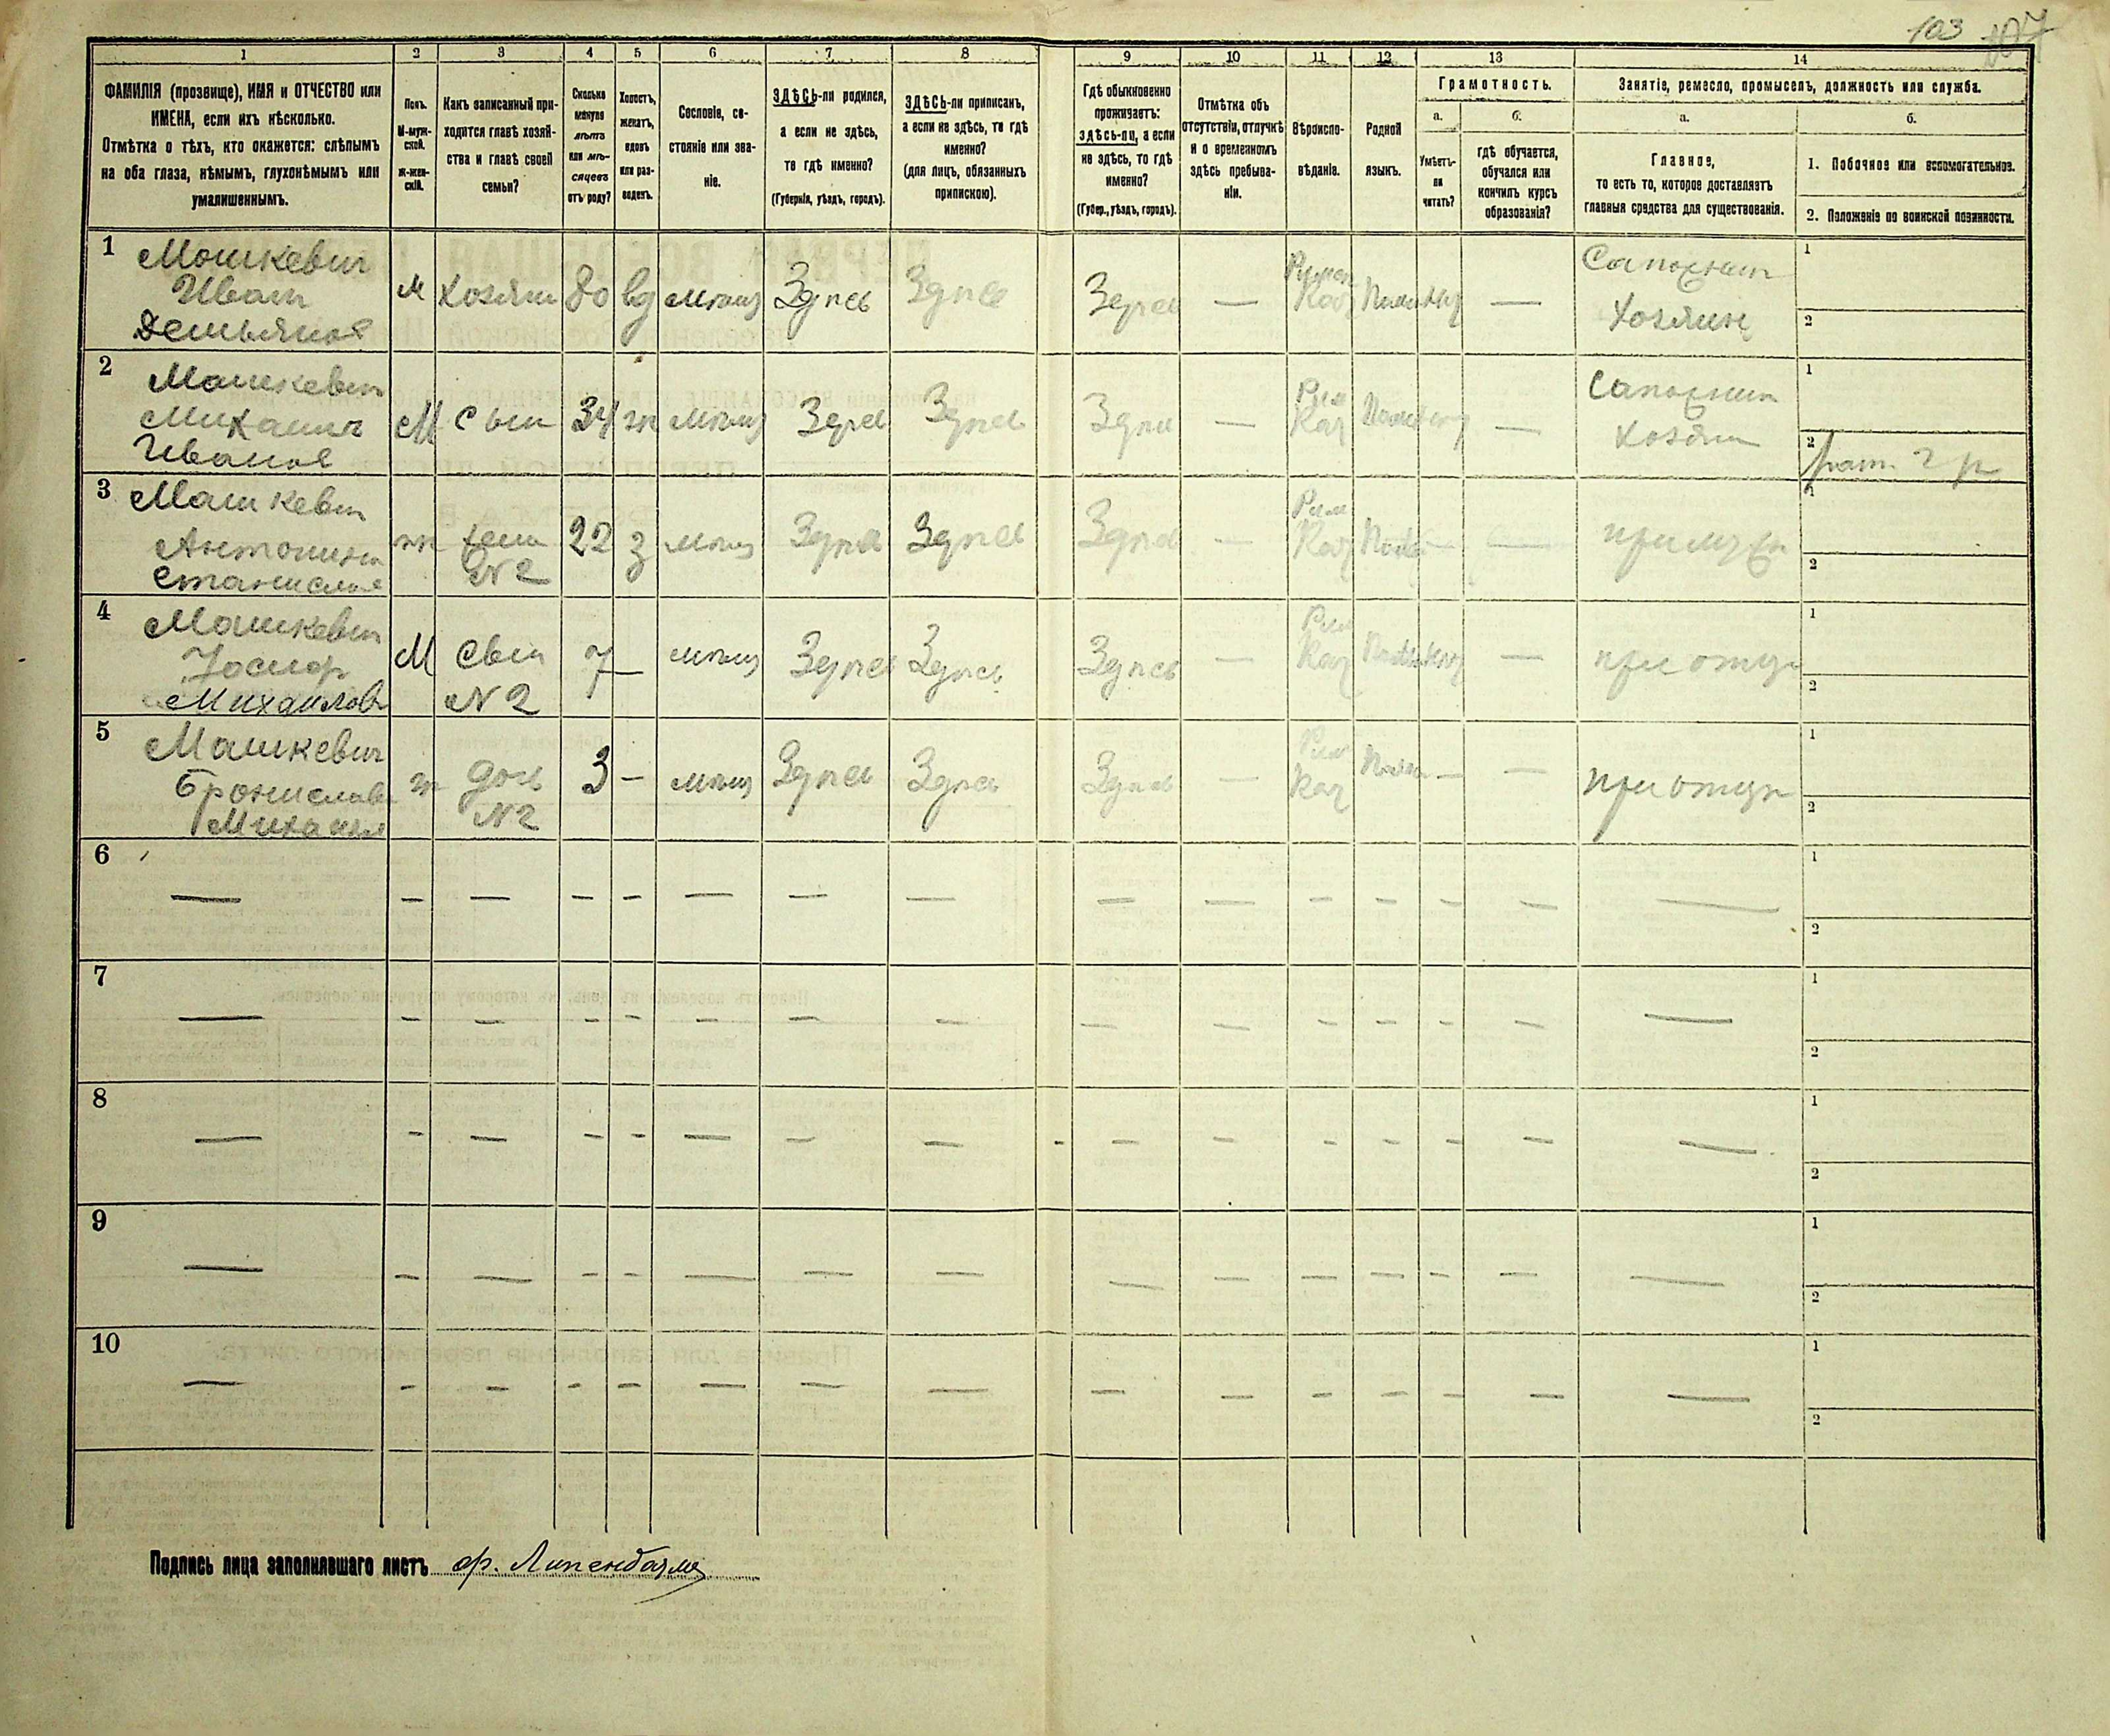 103 107
1 2 3 4 5 6 7 8 9 10 11 12 13 14
ФАМИЛІЯ (прозвище), ИМЯ и ОТЧЕСТВО или
ИМЕНА, если ихъ нѣсколько.
Отмѣтка о тѣхъ, кто окажется: слѣпымъ
на оба глаза, нѣмымъ, глухонѣмымъ или
умалишеннымъ.
Полъ.
М-муж-
ской.
Ж-жен-
скій.
Какъ записанный при-
ходится главѣ хозяй-
ства и главѣ своей
семьи?
Сколько
минуло
лѣтъ
или мѣ-
сяцевъ
отъ роду?
Холостъ,
женатъ,
вдовъ
или раз-
веденъ.
Сословіе, со-
стояніе или зва-
ніе.
ЗДѢСЬ-ли родился,
а если не здѣсь,
то гдѣ именно?
(Губернія, уѣздъ, городъ).
ЗДѢСЬ-ли приписанъ,
а если не здѣсь, то гдѣ
именно?
(для лицъ, обязанныхъ
припискою).
Гдѣ обыкновенно
проживаетъ:
здѣсь-ли, а если
не здѣсь, то гдѣ
именно?
(Губер., уѣздъ, городъ).
Отмѣтка объ
отсутствіи, отлучкѣ
и о временномъ
здѣсь пребыва-
ніи.
Вѣроиспо-
вѣданіе.
Родной
языкъ.
Грамотность.
а.
Умѣетъ-
ли
читать?
б.
гдѣ обучается,
обучался или
кончилъ курсъ
образованія?
Занятіе, ремесло, промыселъ, должность или служба.
а.
Главное,
то есть то, которое доставляетъ
главныя средства для существованія.
б.
1. Побочное или вспомогательное.
2. Положеніе по воинской повинности.
1 Мошкевич
Иван
Демьянов
М Хозяин 80 вд мѣщ Здѣсь Здѣсь Здѣсь —
Кат
—
Сапожник
Хозяин
1
2
2 Машкевич
Михаил
Иванов
М Сын 34 ж мѣщ Здѣсь Здѣсь Здѣсь —
Рим
Кат
—
Сапожник
Хозяин
1
2 рат. 2 р
3 Машкевич
Антонина
Станислав
ж жена
№ 2
22 з мѣщ Здѣсь Здѣсь Здѣсь —
Рим
Кат
— —
при муже
1
2
4 Машкевич
Іосиф
Михаилов
М Сын
№ 2
7 — мѣщ Здѣсь Здѣсь Здѣсь —
Рим
Кат
—
при отце
1
2
5 Машкевич
Бронислава
Михаил
ж дочь
№ 2
3 — мѣщ Здѣсь Здѣсь Здѣсь —
Рим
Кат
— —
при отце
1
2
6 — — — — — — — — — — — — — — —
1
2
7 — — — — — — — — — — — — — — —
1
2
8 — — — — — — — — — — — — — — —
1
2
9 — — — — — — — — — — — — — — —
1
2
10 — — — — — — — — — — — — — — —
1
2
Подпись лица заполнявшаго листъ